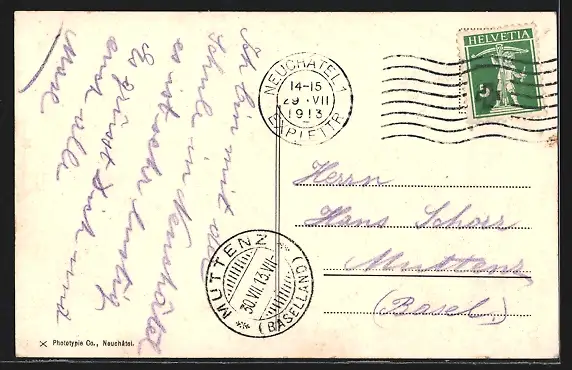 Ich bin mit der
Schule in Neuchâtel
es ist sehr lustig
Es grüsst Dich und
euch alle
Max
NEUCHÂTEL 1
14-15
29 · VII
1913
EXP. LETTR.
HELVETIA
5
Herrn
Hans Schorr
Muttenz
(Basel.)
MUTTENZ
30.VII.13.VII-
(BASELLAND)
X Phototypie Co., Neuchâtel.